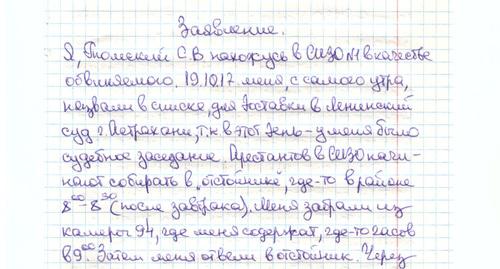 Заявление.
Я, Томский С.В нахожусь в СИЗО №1 в качестве
обвиняемого. 19.10.17 меня, с самого утра,
назвали в списке, для доставки в Ленинский
суд г. Астрахани, т.к в этот день - у меня было
судебное заседание. Арестантов в СИЗО начи-
нают собирать в "отстойнике", где-то в районе
8⁰⁰-8³⁰ (после завтрака). Меня забрали из
камеры 94, где меня содержат, где-то часов
в 9⁰⁰. Затем меня отвели в отстойник. Через